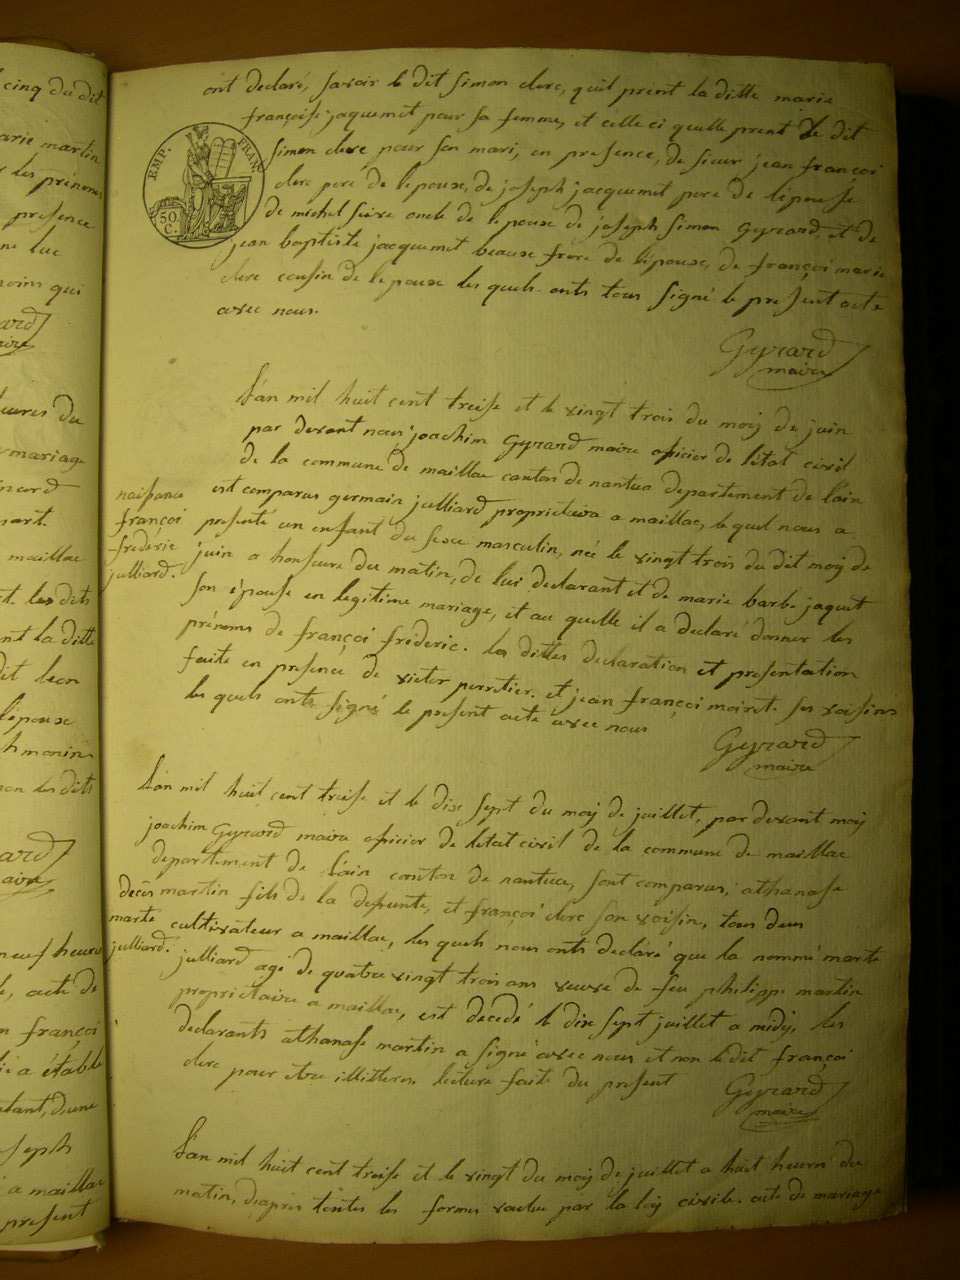 cinq du dit
ont declaré, savoir le dit simon clerc, quil prent la ditte marie
françoise jaquemet pour sa femme, et celle ci quelle prent le dit
simon clerc pour son mari, en presence, de sieur jean françoi
clerc peré de lepoux, de joseph jacquemit pere de lépouse
de michel oncle de lepoux de joseph simon Gyrard et de
jean baptiste jacquemet beaux frere de lépoux, de françoi marie
clerc cousin de lepoux les quels onts tous signé le present acte
avec nous.
EMP. FRAN.
50 C.
Gyrard
maire
L'an mil huit cent treise et le vingt trois du moij de juin
par devant nous joachim Gyrard maire oficier de létat civil
de la commune de maillac canton de nantua departement de lain
est comparus germain julliard proprietera a maillac, le quel nous a
presenté un enfant du sexe masculin, née le vingt trois du dit moij de
juin a honseure du matin, de lui declarant et de marie barbe jaquet
son épouse en legitime mariage, et au quelle il a declaré donner les
prénoms de françoi fréderic. les dittes declaration et presentation
faite en presence de victor perretier. et jean françoi moiret ses voisins
les quels onts signé le present acte avec nous
naissance
françoi
fréderic
julliard.
Gyrard
maire
L'an mil huit cent treise et le dix sept du moij de juillet, par devant moij
joachim Gyrard maire oficier de létat civil de la commune de maillac
departement de l'ain canton de nantua, sont comparus, athanase
martin fils de la defunte, et françoi clerc son voisin, tous deux
cultivateur a maillac, les quels nous onts declaré que la nommé marte
julliard agé de quatre vingt trois ans veuve de feu philippe martin
proprietaire a maillac, est decedé le dix sept juillet a midij, les
declarants athanase martin a signé avec nous et non le dit françoi
clerc pour être illitteren lecture faite du present
decès
marte
julliard.
Gyrard
maire
L'an mil huit cent treise et le vingt du moij de juillet a huit heures du
matin, d'apres toutes les formes voulue par la loij civile. acte de mariage
arie martin
les prénoms
presence
luc
moins qui
heures du
mariage
maillac
les dits
la ditte
lépouse
les dits
neuf heures
acte de
françoi
a établi
a maillac
present